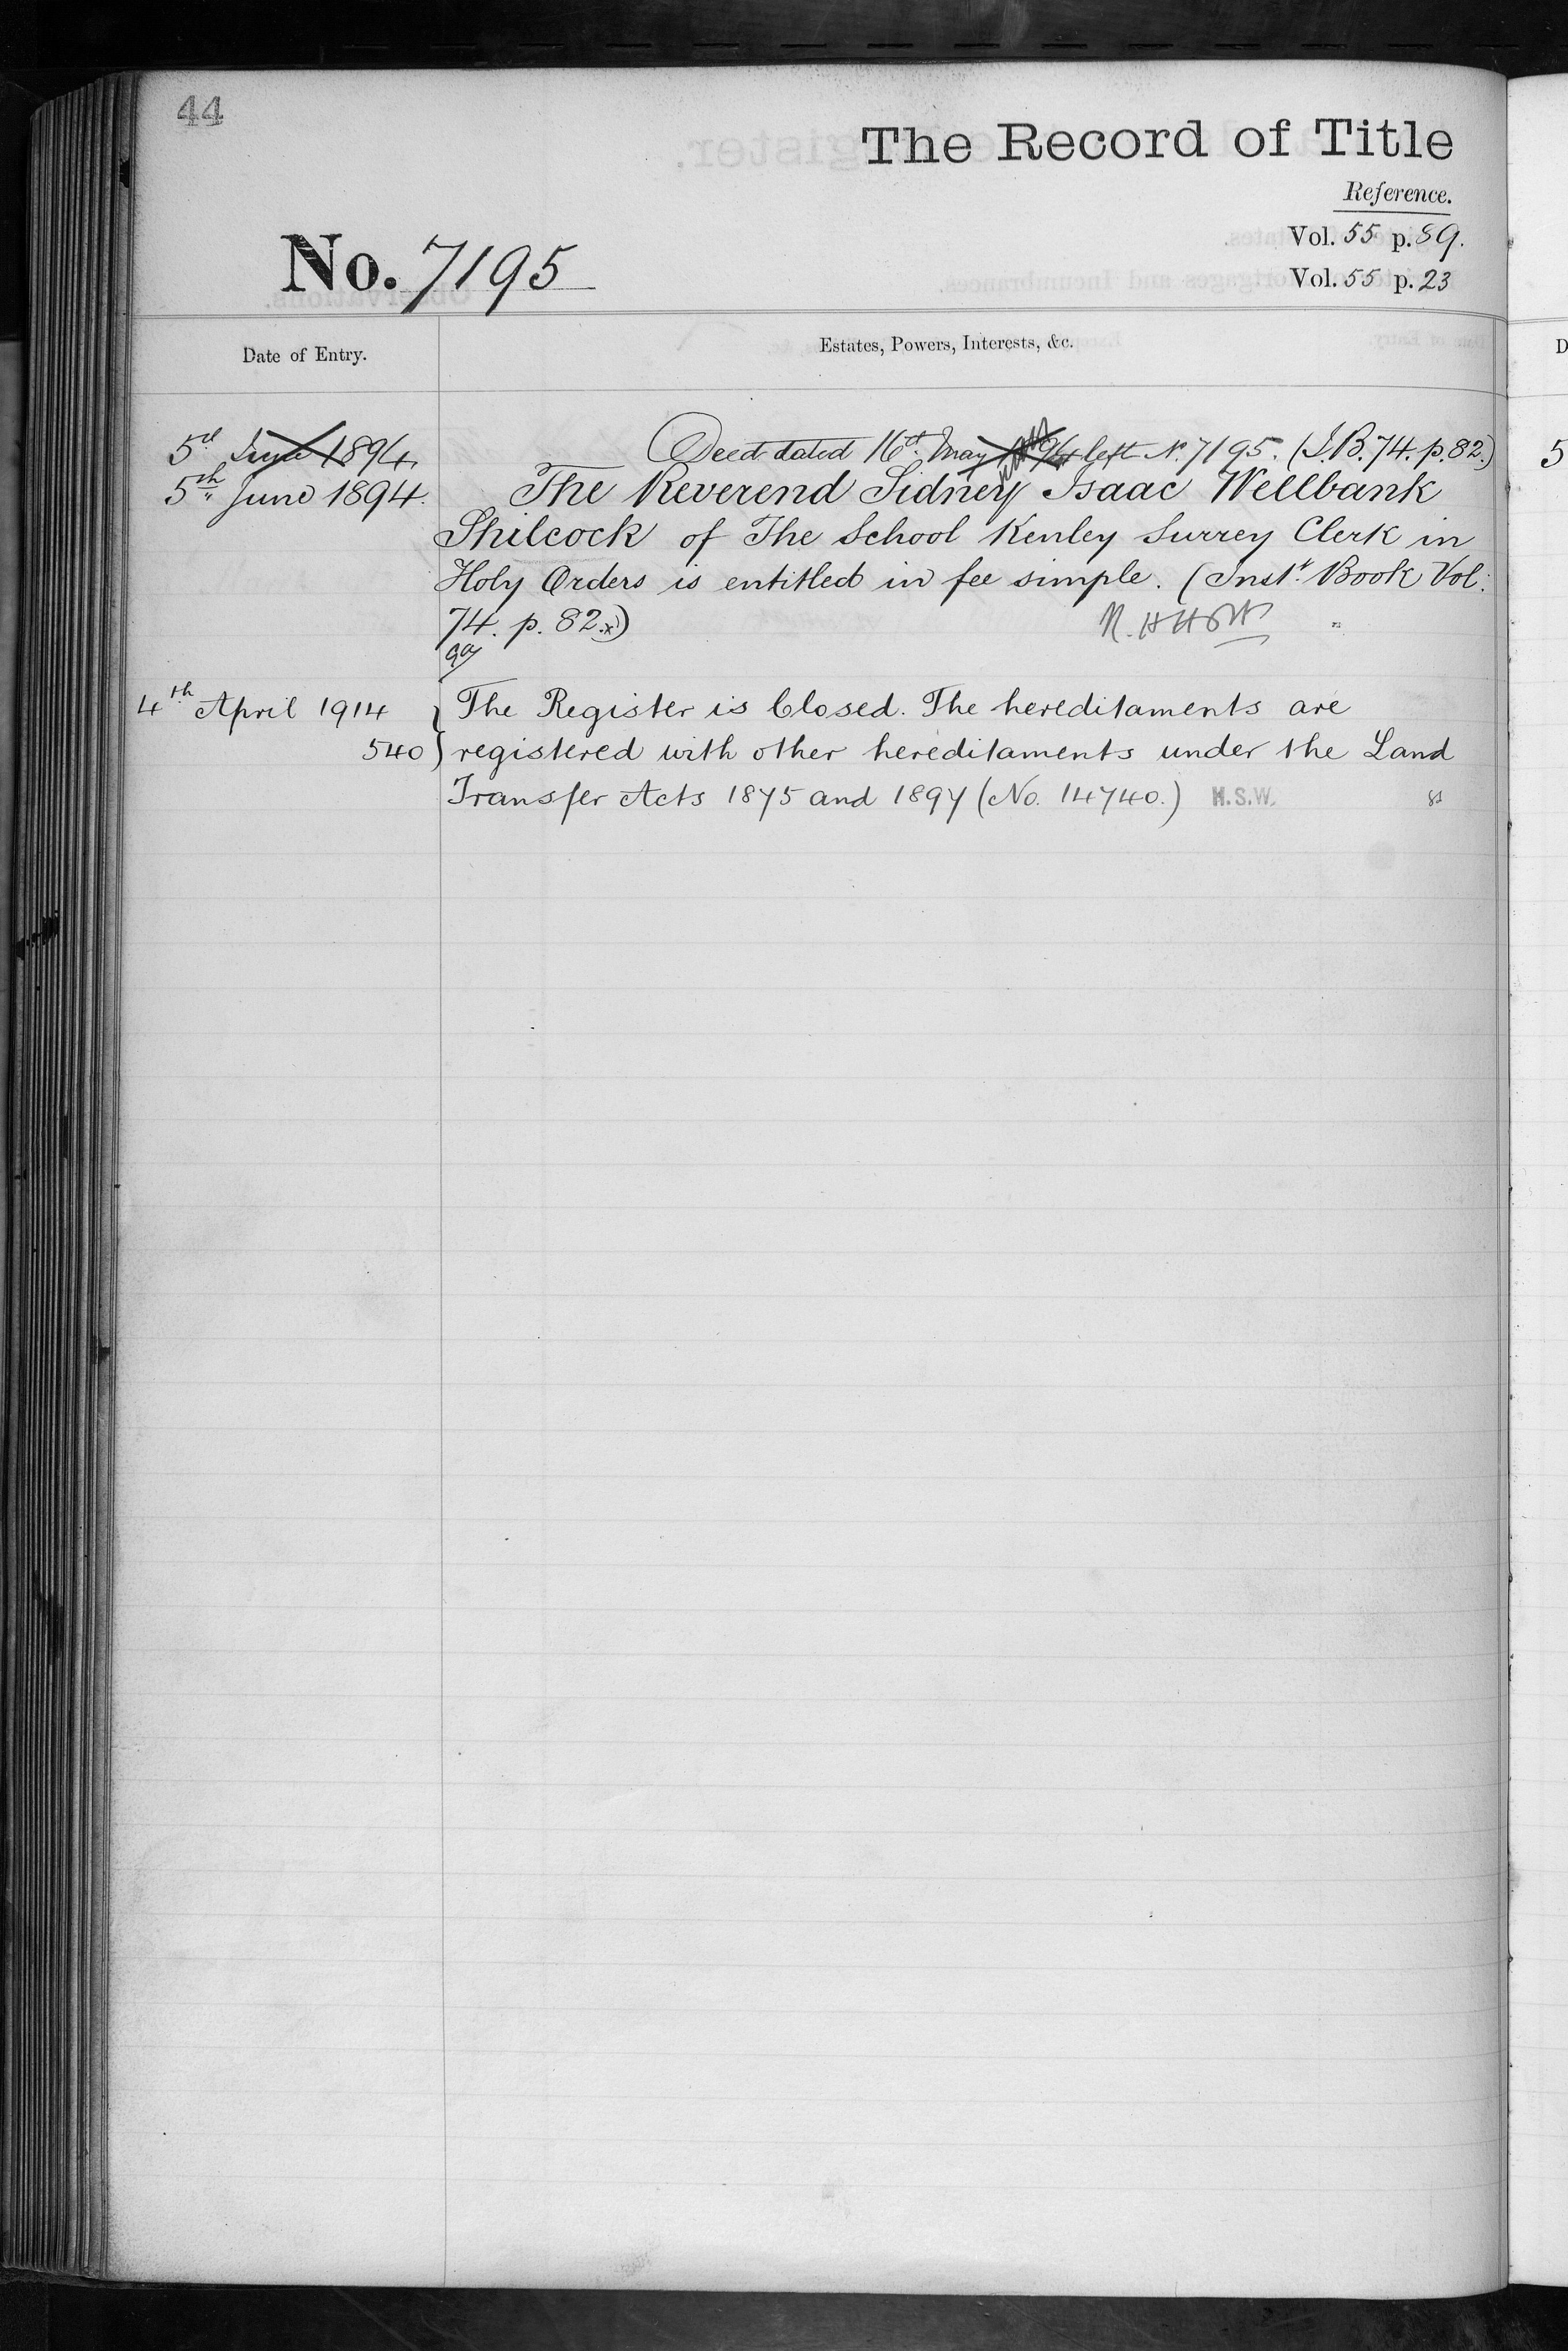 44
The Record of Title
Reference.
Vol. 55 p. 89.
No. 7195
Vol. 55 p. 23
Date of Entry.
Estates, Powers, Interests, &c.
5th June 1894 Deed dated 16th May 94 left No. 7195. (I.B. 74. p. 82.)
5th June 1894. The Reverend Sidney Isaac Wellbank
Shilcock of The School Kenley Surrey Clerk in
Holy Orders is entitled in fee simple. (Inst. Book Vol.
74. p. 82.x)
4th April 1914 The Register is Closed. The hereditaments are
540 registered with other hereditaments under the Land
Transfer Acts 1875 and 1897 (No. 14740.) H.S.W.
D
5